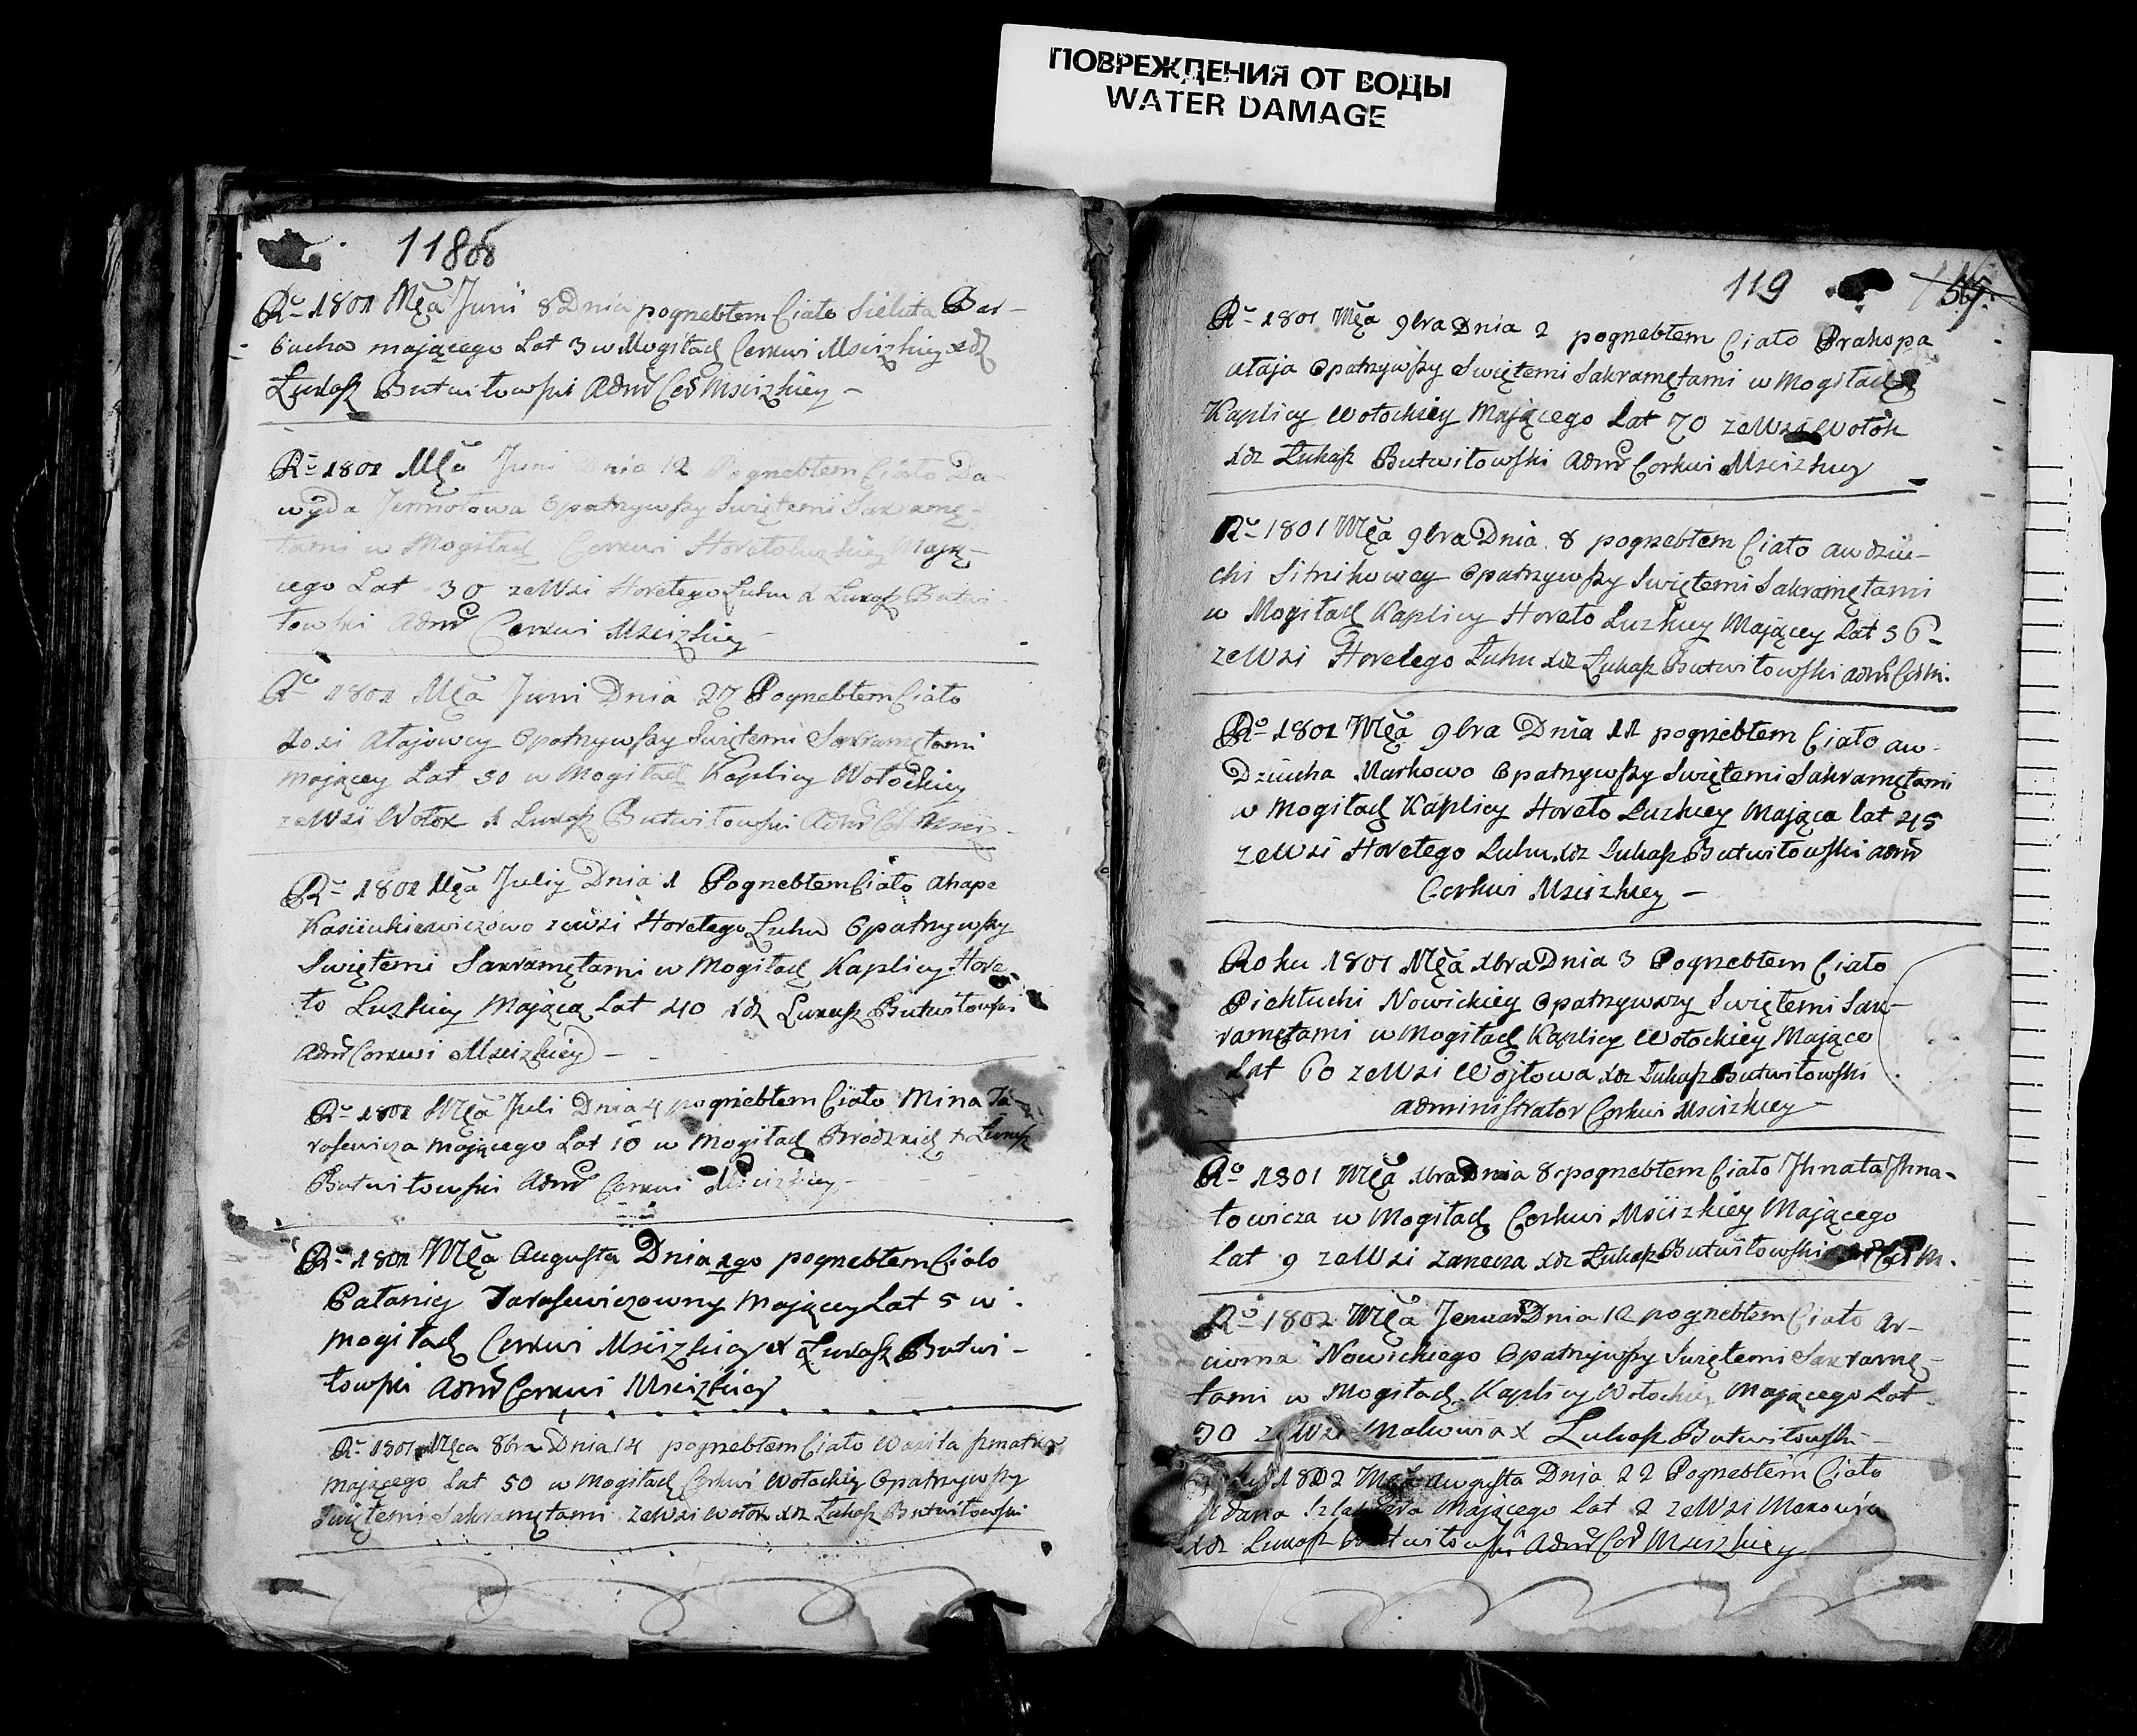 ПОВРЕЖДЕНИЯ ОТ ВОДЫ
WATER DAMAGE
118об
Rº 1801 Mca Juni 8 Dnia pogrzebłem Ciało Sieluta Bar-
bucha mającego Lat 3 w Mogiłach Cerkwi Mscizkiey xdz
Łukasz Butwiłowski Admr Cer Mscizkiey –
Rº 1801 Mca Juni Dnia 12 Pogrzebłem Ciało Da-
wyda Jermołowa Opatrzywszy Swiętemi Sakramę-
tami w Mogiłach Cerkwi Horetołuzkiey Mają-
cego Lat 30 zeWsi Horełego Łuhu X Łukasz Butwi
łowski Admr Cerkwi Mscizkiey –
Rº 1801 Mca Juni Dnia 27 Pogrzebłem Ciało
Zosi Atajowey Opatrzywszy Swiętemi Sakramętami
mającey Lat 50 w Mogiłach Kaplicy Wołockiey
zeWsi Wołok X Łukasz Butwiłowski Admr Cer Mscis
Rº 1801 Mca Julij Dnia 1 Pogrzebłem Ciało Ahape
Kasiukiewiczowo zeWsi Horełego Łuhu Opatrzywszy
Swiętemi Sakramętami w Mogiłach Kaplicy Hore
ło Łuzkiey Mającą Lat 40 xdz Łukasz Butwiłowski
Admr Cerkwi Mscizkiey –
Rº 1801 Mca Juli Dnia 4 pogrzebłem Ciało Mina Ta-
rasewicza mającego Lat 10 w Mogiłach Brodzkich X Łukasz
Butwiłowski Admr Cerkwi Mscizkiey –
Rº 1801 Mca Augusta Dnia 1go pogrzebłem Ciało
Pałaniey Tarasewiczowny mającey Lat 5 w
mogiłach Cerkwi Mscizkiey X Łukasz Butwi-
łowski Admr Cerkwi Mscizkiey
Rº 1801 Mca 8bra Dnia 14 pogrzebłem Ciało Wasila
mającego Lat 50 w Mogiłach Cerkwi Wołockiey Opatrzywszy
Swiętemi Sakramętami zeWsi Wołok xdz Łukasz Butwiłowski
119
Rº 1801 Mca 9bra Dnia 2 pogrzebłem Ciało Prakopa
ataja Opatrzywszy Swiętemi Sakramętami w Mogiłach
Kaplicy Wołockiey Mającego Lat 70 zeWsi Wołok
xdz Łukasz Butwiłowski Admr Cerkwi Mscizkiey
Rº 1801 Mca 9bra Dnia 8 pogrzebłem Ciało audziu-
chi Sitnikowey Opatrzywszy Swiętemi Sakramętami
w Mogiłach Kaplicy Horeło Łuzkiey Mającey Lat 36 –
zeWsi Horełego Łuhu xdz Łukasz Butwiłowski admr Cer M.
Rº 1801 Mca 9bra Dnia 11 pogrzebłem Ciało au-
Dziucha Markowo Opatrzywszy Swiętemi Sakramętami
w Mogiłach Kaplicy Horeło Łuzkiey Mająca lat 45
zeWsi Horełego Łuhu xdz Łukasz Butwiłowski admr
Cerkwi Mscizkiey –
Roku 1801 Mca Xbra Dnia 3 Pogrzebłem Ciało
Piekłuchi Nowickiey Opatrzywszy Swiętemi Sak-
ramętami w Mogiłach Kaplicy Wołockiey Mająco
Lat 60 zeWsi Wojtowa xdz Łukasz Butwiłowski
administrator Cerkwi Mscizkiey –
Rº 1801 Mca Xbra Dnia 8 pogrzebłem Ciało Jhnata Jhna-
towicza w Mogiłach Cerkwi Mscizkiey Mającego
Lat 9 zeWsi Zarecza xdz Łukasz Butwiłowski Cer M.
Rº 1802 Mca Jenuar Dnia 12 pogrzebłem Ciało Ar-
cioma Nowickiego Opatrzywszy Swiętemi Sakramę-
tami w Mogiłach Kaplicy Wołockiey Mającego Lat
30 zeWsi X Łukasz Butwiłowski –
1802 Mca Augusta Dnia 22 Pogrzebłem Ciało
Mającego Lat 2 zeWsi
xdz Łukasz Butwiłowski Admr Cer Mscizkiey